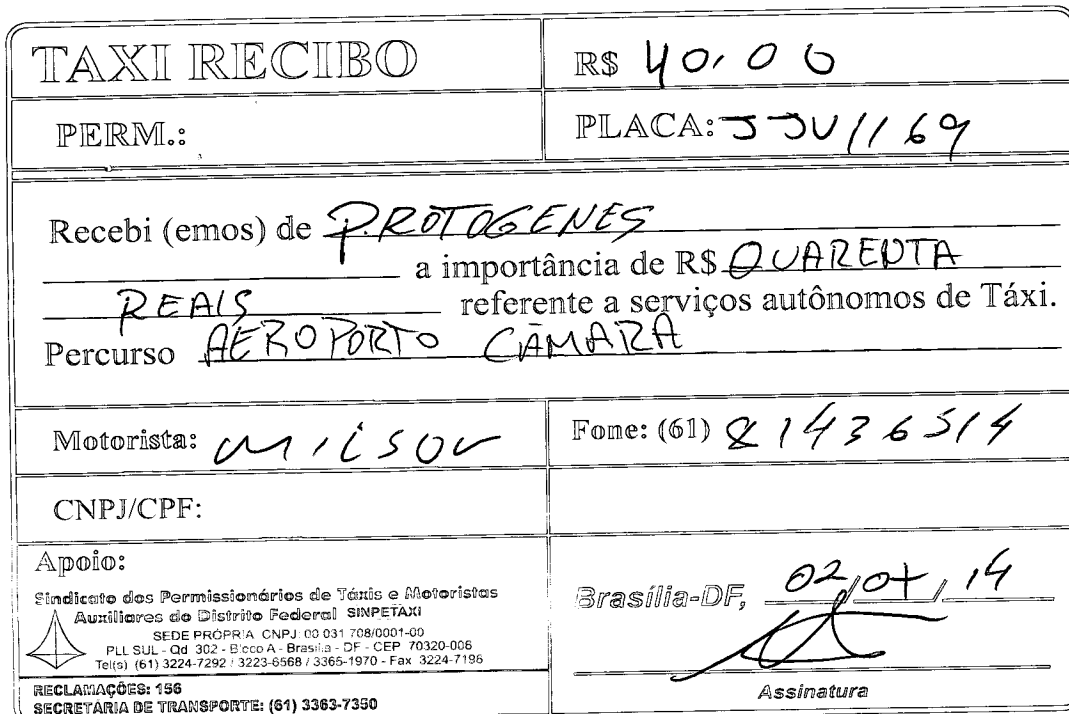 TAXI RECIBO
R$ 40,00
PERM.:
PLACA: JJU 1169
Recebi (emos) de PROTOGENES
a importância de R$ QUARENTA
REAIS referente a serviços autônomos de Táxi.
Percurso AEROPORTO CÂMARA
Motorista: milsov
Fone: (61) 81436514
CNPJ/CPF:
Apoio:
Sindicato dos Permissionários de Táxis e Motoristas
Auxiliares do Distrito Federal SINPETAXI
SEDE PRÓPRIA CNPJ: 00 031 708/0001-00
PLL SUL - Qd 302 - Bloco A - Brasília - DF - CEP 70320-006
Tel(s) (61) 3224-7292 / 3223-6568 / 3365-1970 - Fax 3224-7196
RECLAMAÇÕES: 156
SECRETARIA DE TRANSPORTE: (61) 3363-7350
Brasília-DF, 02/07/14
Assinatura